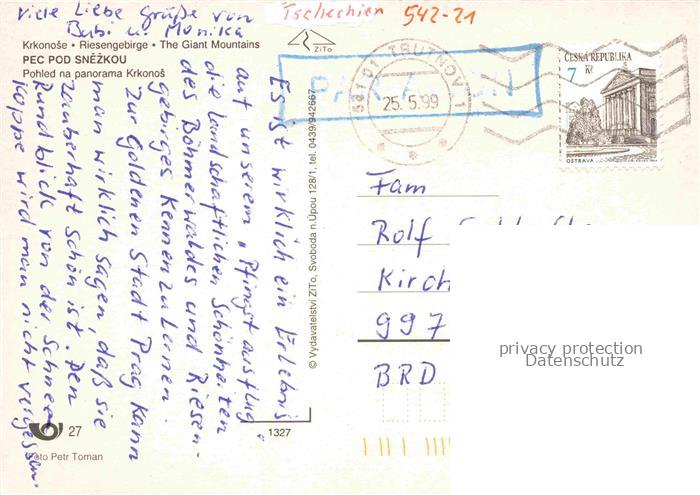 Viele Liebe Grüße von
Bubi u. Monika
Tschechien 542-21
Krkonoše • Riesengebirge • The Giant Mountains
PEC POD SNĚŽKOU
Pohled na panorama Krkonoš
ZiTo
Es ist wirklich ein Erlebnis
auf unserem „Pfingstausflug"
die landschaftlichen Schönheiten
des Böhmerwaldes und Riesen-
gebirges Kennenzulernen.
Zur Goldenen Stadt Prag kann
man wirklich sagen, daß sie
zauberhaft schön ist. Den
Rundblick von der Schnee
Koppe wird man nicht vergessen.
© Vydavatelství ZiTo, Svoboda n.Úpou 128/1, tel. 0439/942667
541 01 TRUTNOV 1
25.5.99
ČESKÁ REPUBLIKA
7 Kč
OSTRAVA
Fam
Rolf
Kirch
997
BRD
privacy protection
Datenschutz
27
1327
Foto Petr Toman